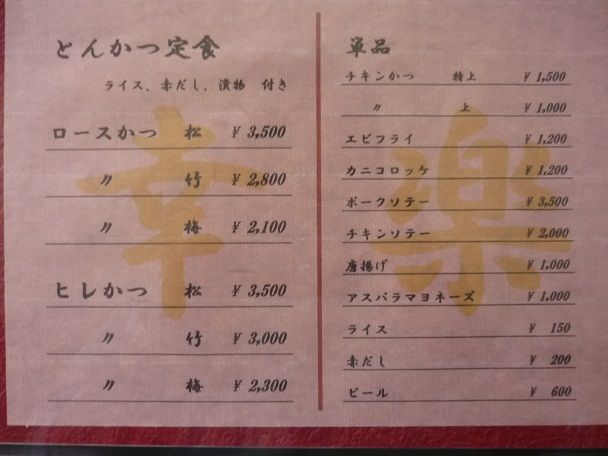 とんかつ定食
ライス、赤だし、漬物 付き
ロースかつ 松 ¥3,500
〃 竹 ¥2,800
〃 梅 ¥2,100
ヒレかつ 松 ¥3,500
〃 竹 ¥3,000
〃 梅 ¥2,300
単品
チキンかつ 特上 ¥1,500
〃 上 ¥1,000
エビフライ ¥1,200
カニコロッケ ¥1,200
ポークソテー ¥3,500
チキンソテー ¥2,000
唐揚げ ¥1,000
アスパラマヨネーズ ¥1,000
ライス ¥ 150
赤だし ¥ 200
ビール ¥ 600
幸楽